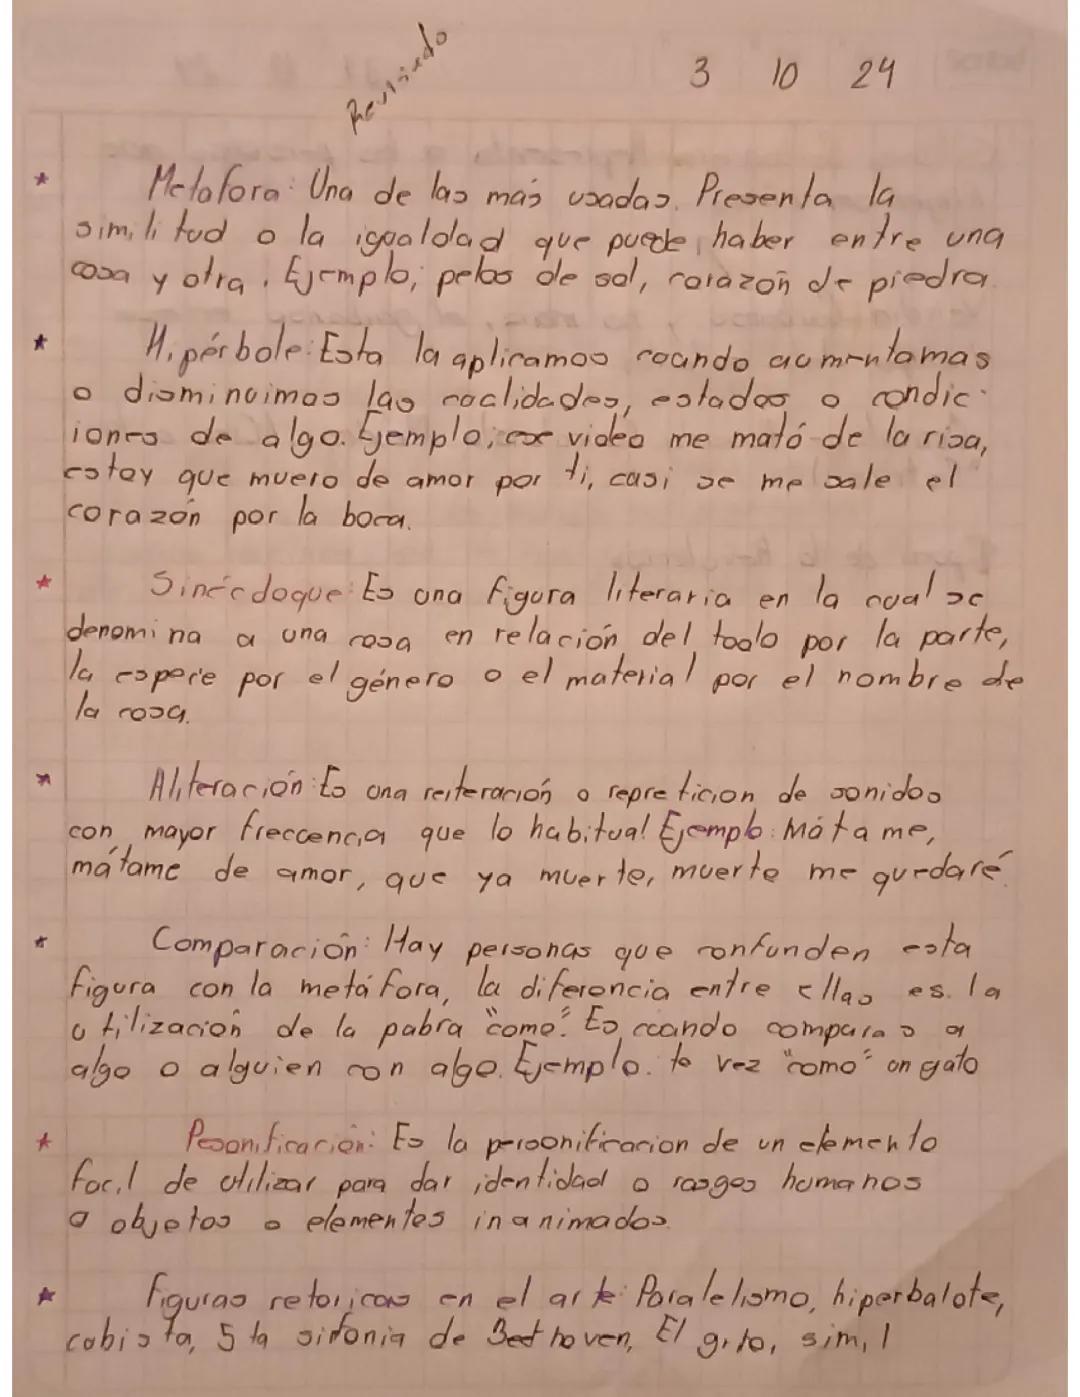 Revisado
3 10 24
Metafora: Una de las más usadas. Presenta la
similitud o la igualdad que puede haber entre una
cosa y otra. Ejemplo; pelos de sol, corazón de piedra.
Hipérbole: Esta la aplicamos cuando aumentamas
o disminuimos las cualidades, estados o condic-
iones de algo. Ejemplo; ese video me mató de la risa,
estoy que muero de amor por ti, casi se me sale el
corazón por la boca.
Sinécdoque: Es una figura literaria en la cual se
denomina a una cosa en relación del todo por la parte,
la especie por el género o el material por el nombre de
la cosa.
Aliteración: Es una reiteración o repreticion de sonidos
con mayor freccencia que lo habitual Ejemplo: Mátame,
mátame de amor, que ya muerte, muerte me quedaré.
Comparación: Hay personas que confunden esta
figura con la metáfora, la diferencia entre ellas es. la
utilización de la pabra "como". Es cuando comparas a
algo o alguien con algo. Ejemplo. te vez "como" un gato
Pesonificación: Es la personificacion de un elemento
facil de utilizar para dar identidad o rasgos humanos
a objetos o elementes inanimados.
Figuras retoricas en el arte: Paralelismo, hiperbalote,
cubista, 5ta sifonia de Beethoven, El grito, simil